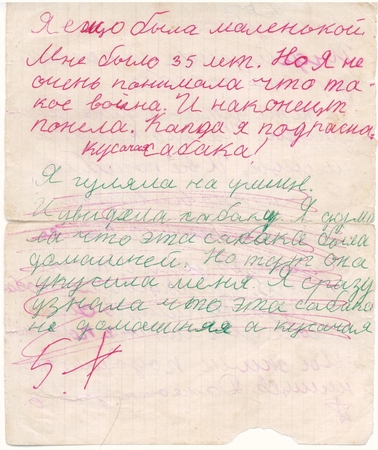 Я ещо была маленькой
Мне было 35 лет. Но я не
очень понимала что та-
кое война. И наконецт
понела. Кагда я подрасла.
кусачая сабака!
Я гуляла на улицы.
И увидела сабаку. Я дума
ла что эта сабака была
домашней. Но тут она
укусила меня. Я сразу
узнала что эта сабака
не домашняя а кусачая